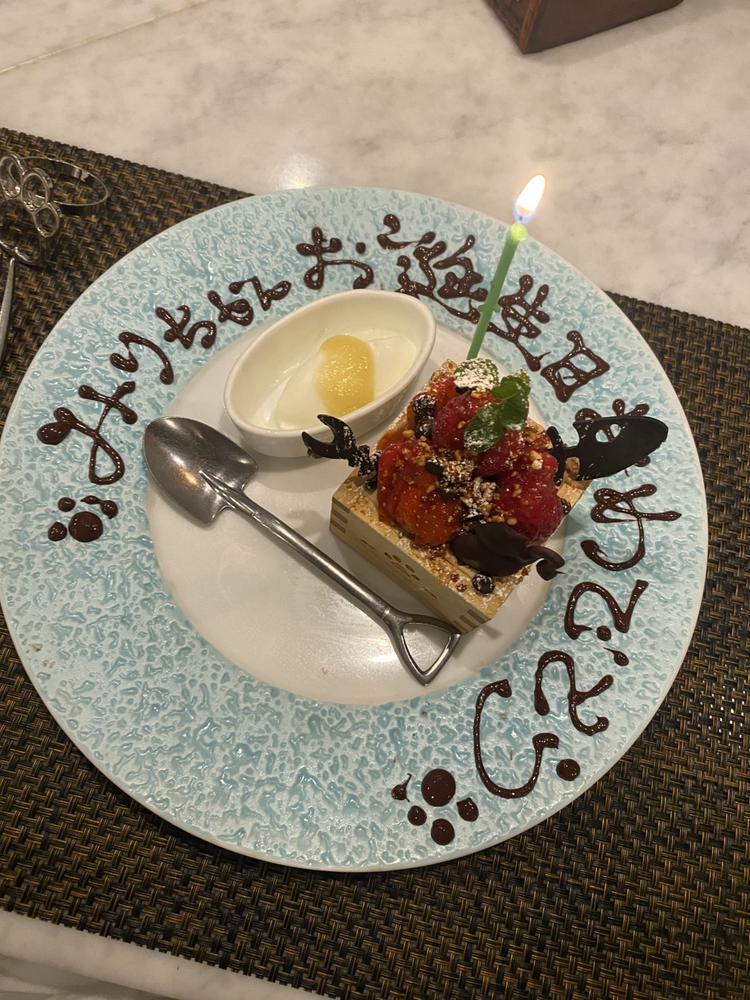 みりちゃんお誕生日おめでとう